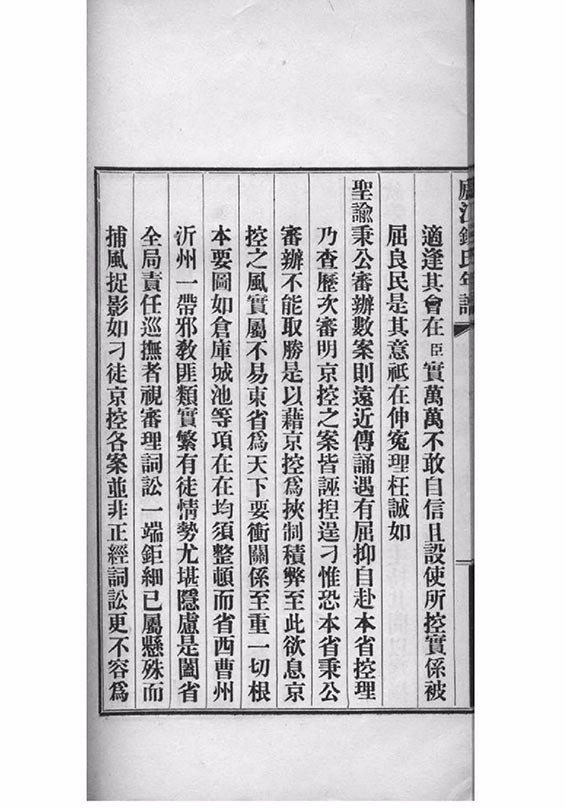 廬江錢氏年譜
適逢其會在臣實萬萬不敢自信且設使所控實係被
屈良民是其意祗在伸寃理枉誠如
聖諭秉公審辦數案則遠近傳誦遇有屈抑自赴本省控理
乃查歷次審明京控之案皆誣揑逞刁惟恐本省秉公
審辦不能取勝是以藉京控爲挾制積弊至此欲息京
控之風實屬不易東省爲天下要衝關係至重一切根
本要圖如倉庫城池等項在在均須整頓而省西曹州
沂州一帶邪敎匪類實繁有徒情勢尤堪隱慮是闔省
全局責任巡撫者視審理詞訟一端鉅細已屬懸殊而
捕風捉影如刁徒京控各案並非正經詞訟更不容爲